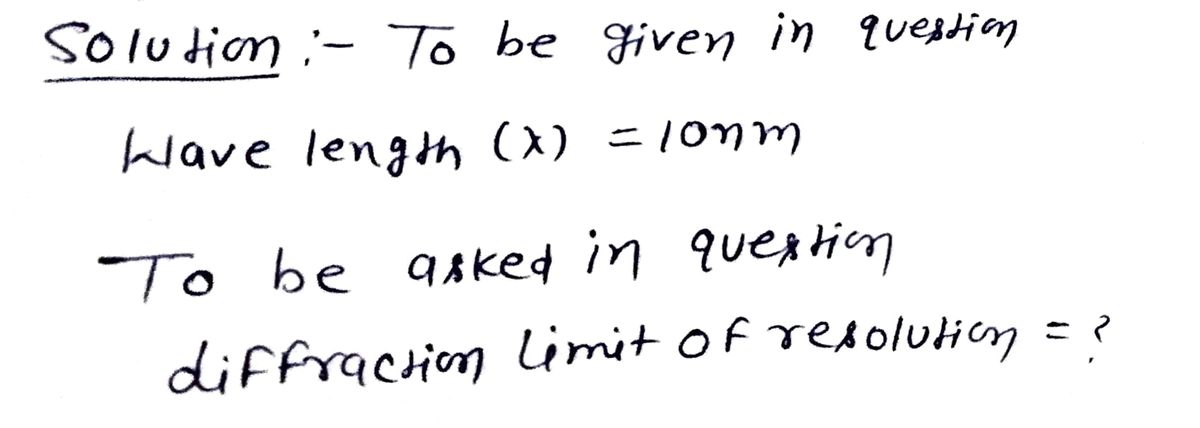 Solution :- To be given in question
Wave length (λ) = 10nm
To be asked in question
diffraction limit of resolution = ?